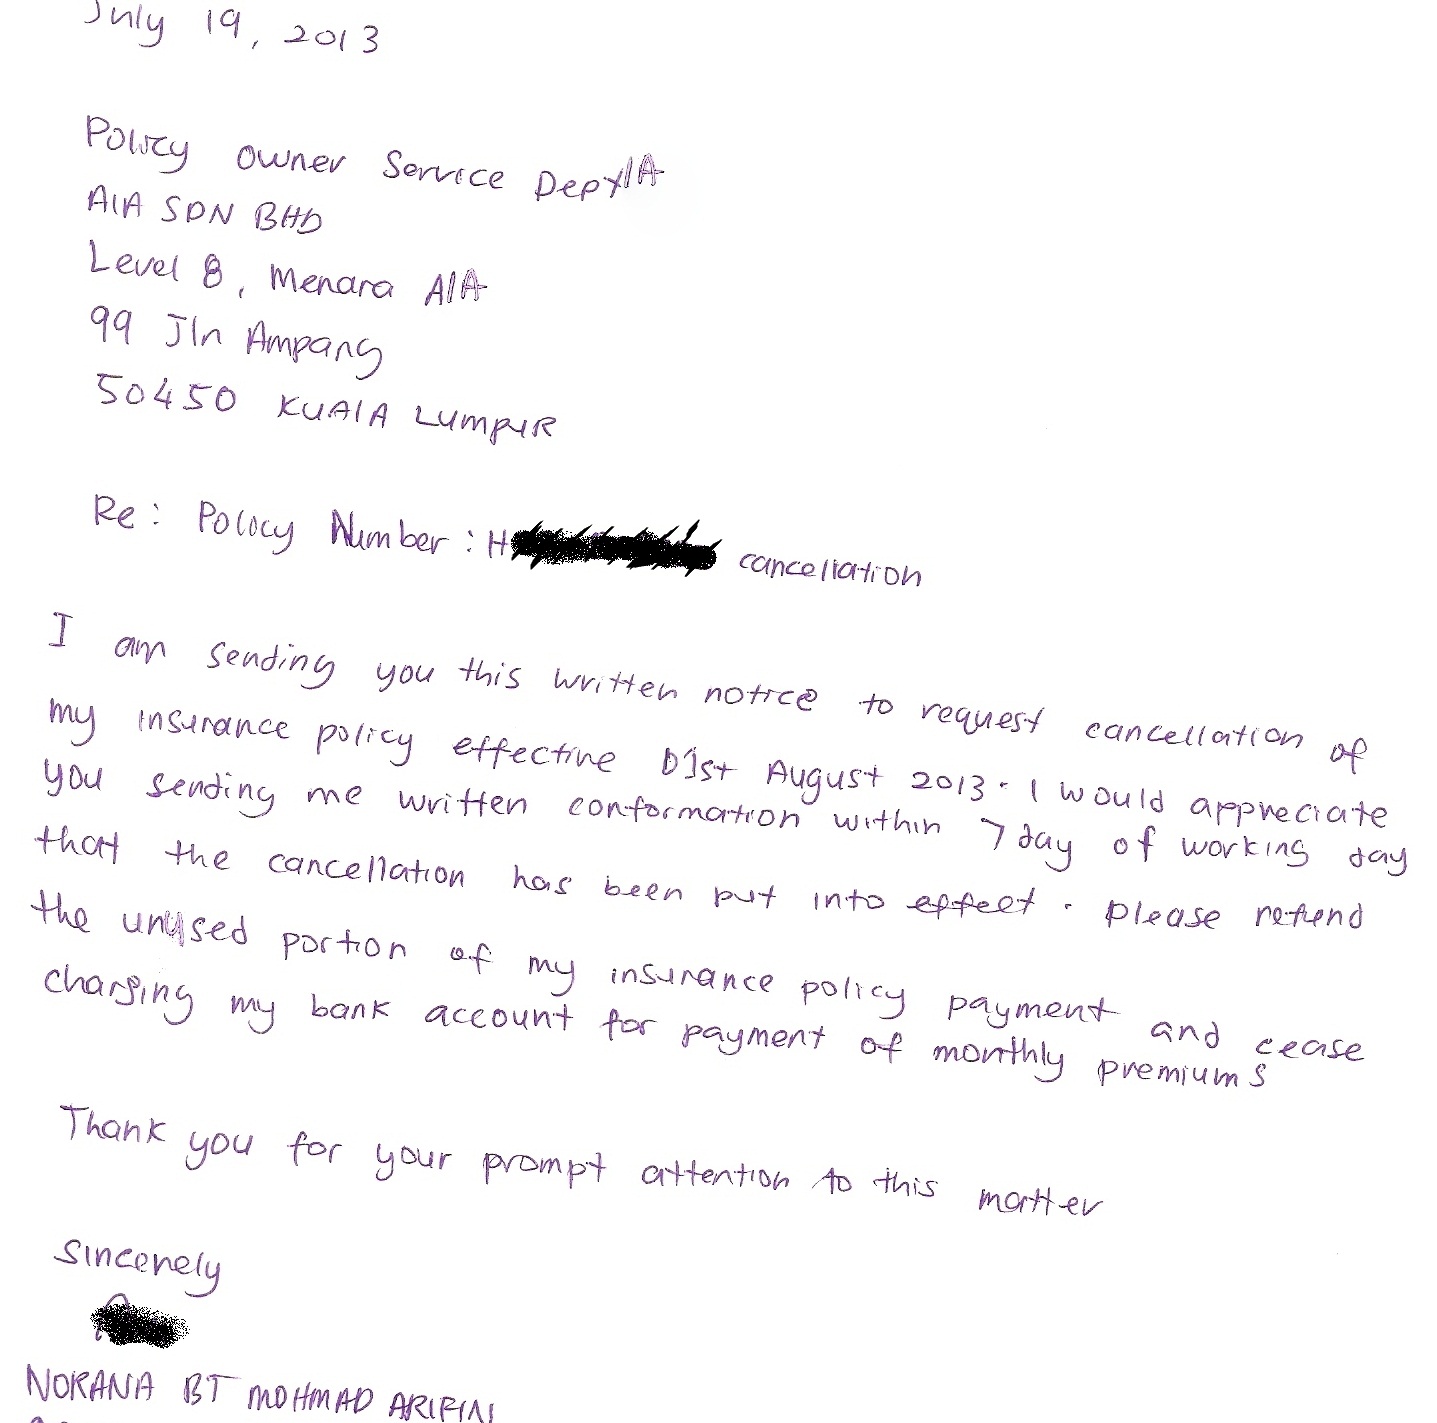 July 19, 2013
Policy owner Service Dept
AIA SDN BHD
Level 8, Menara AIA
99 Jln Ampang
50450 KUALA LUMPUR
Re: Policy Number: H cancellation
I am sending you this written notice to request cancellation of
my insurance policy effective 01st August 2013. I would appreciate
you sending me written conformation within 7 day of working day
that the cancellation has been put into effect. please refund
the unused portion of my insurance policy payment and cease
charging my bank account for payment of monthly premiums
Thank you for your prompt attention to this matter
Sincerely
NORANA BT MOHMAD ARIFIN